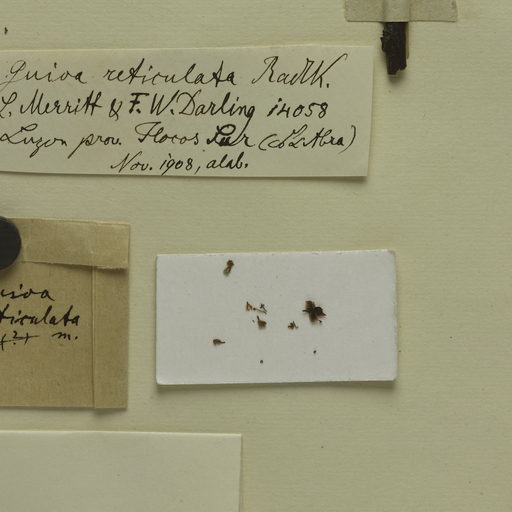 Guioa reticulata Radlk.
L. Merritt & F. W. Darling 14058
Luzon prov. Ilocos Sur (
Nov. 1908, alab.
uioa
ticulata
m.